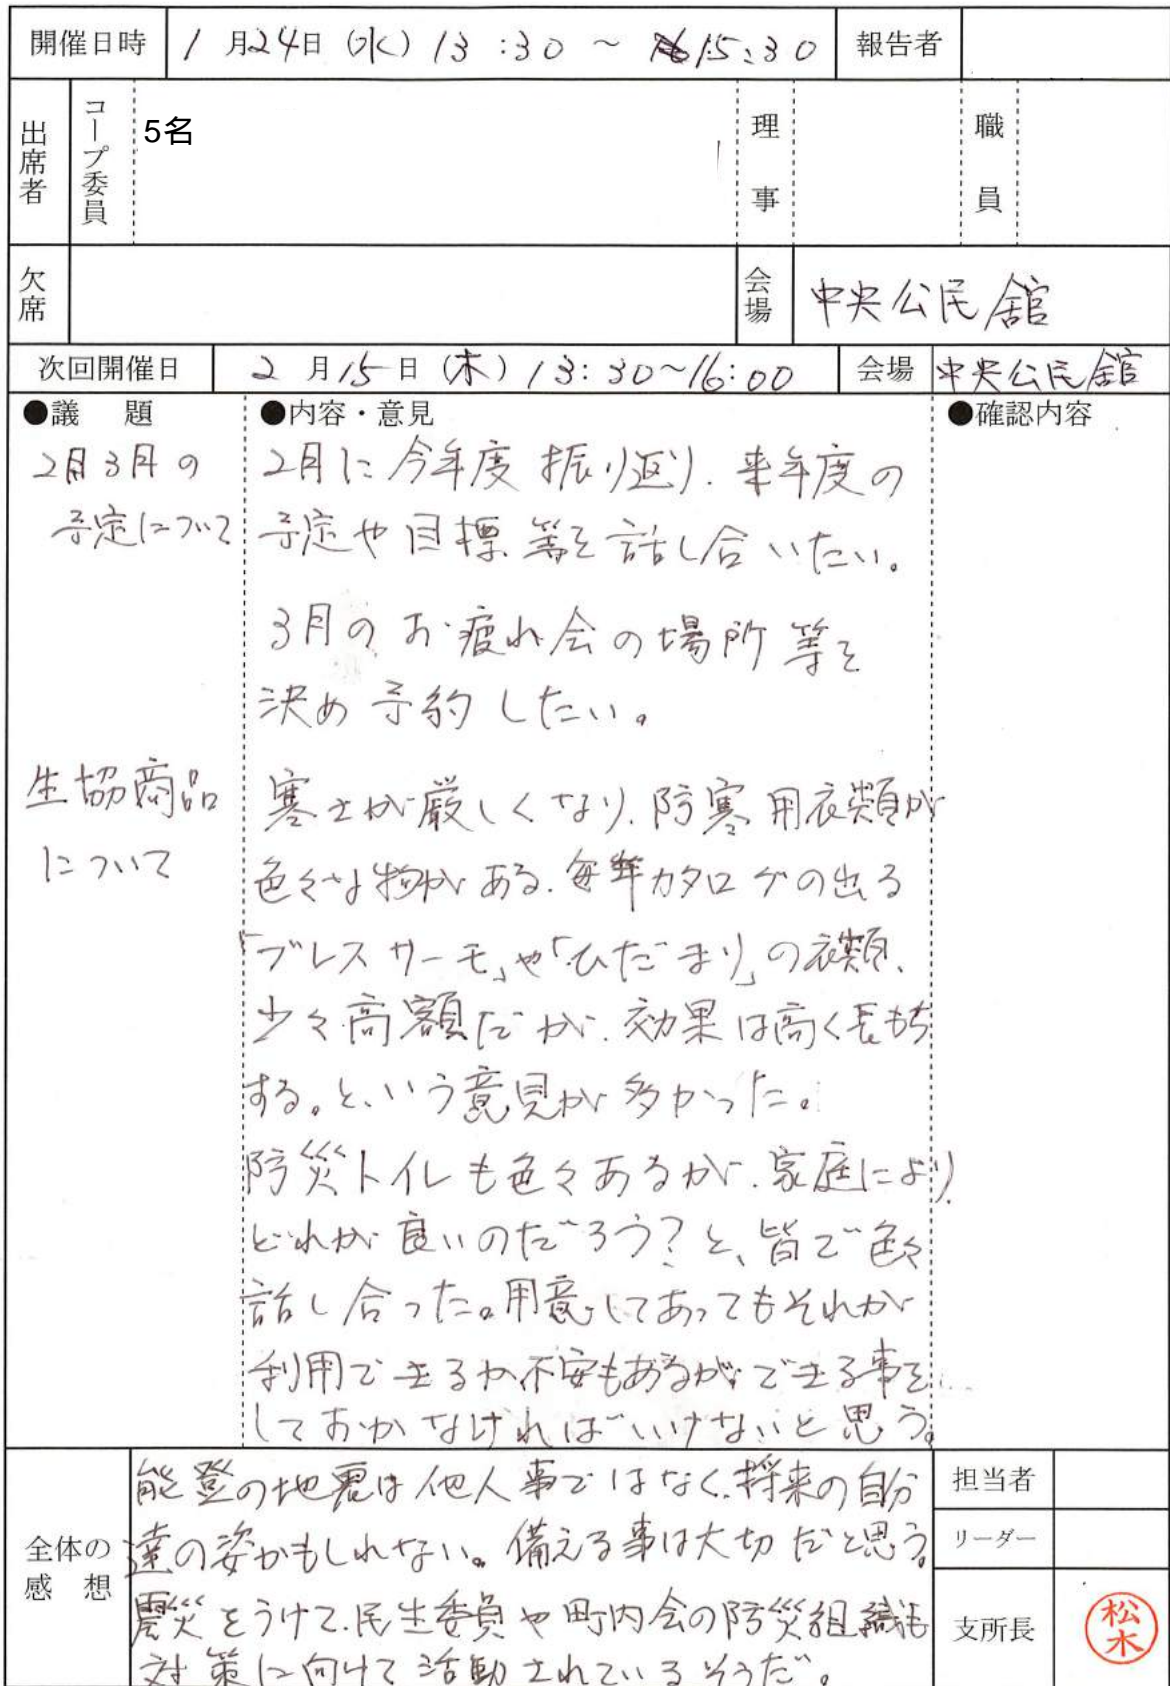 開催日時 1月24日(水)13:30～15:30 報告者
出席者 コープ委員 5名 理事 職員
欠席 会場 中央公民館
次回開催日 2月15日(木)13:30～16:00 会場 中央公民館
●議題 ●内容・意見 ●確認内容
2月3月の
予定について
2月に今年度振り返り、来年度の
予定や目標等を話し合いたい。
3月のお疲れ会の場所等を
決め予約したい。
生協商品
について
寒さが厳しくなり、防寒用衣類が
色々な物がある。毎年カタログの出る
「ブレスサーモ」や「ひだまり」の衣類、
少々高額だが、効果は高く長もち
する。という意見が多かった。
防災トイレも色々あるが、家庭により
どれが良いのだろう？と、皆で色々
話し合った。用意してあってもそれが
利用できるか不安もあるができる事を
しておかなければいけないと思う。
全体の感想
能登の地震は他人事ではなく、将来の自分
達の姿かもしれない。備える事は大切だと思う。
震災をうけて、民生委員や町内会の防災組織も
対策に向けて活動されているそうだ。
担当者
リーダー
支所長 松木